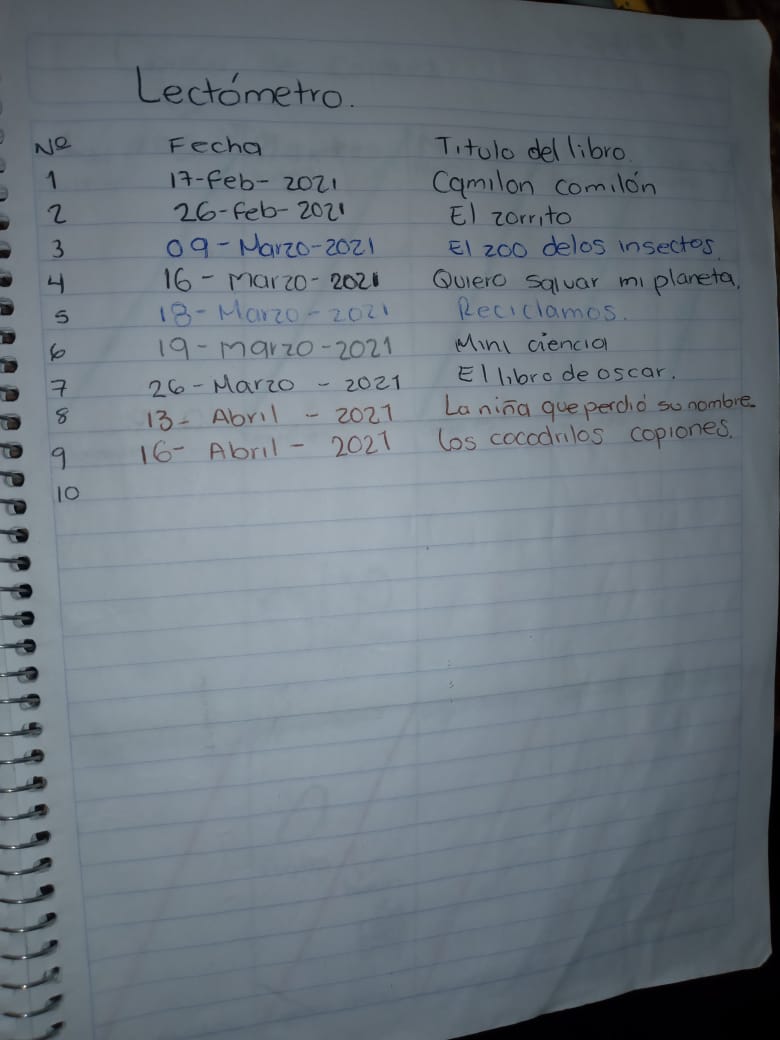 Lectómetro.
Nº Fecha Titulo del libro.
1 17-feb-2021 Camilon comilón
2 26-feb-2021 El zorrito
3 09-Marzo-2021 El zoo delos insectos.
4 16-marzo-2021 Quiero salvar mi planeta.
5 18-Marzo-2021 Reciclamos.
6 19-marzo-2021 Mini ciencia
7 26-Marzo-2021 El libro de oscar.
8 13-Abril-2021 La niña que perdió su nombre.
9 16-Abril-2021 Los cocodrilos copiones.
10